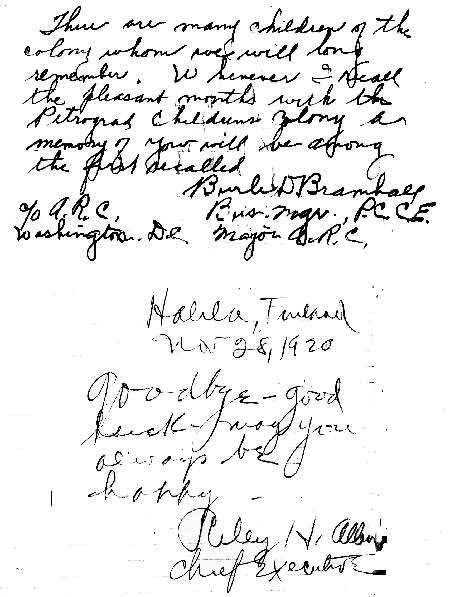 There are many children of the
colony whom we will long
remember. Whenever I recall
the pleasant months with the
Petrograd Childrens Colony a
memory of you will be among
the first recalled
Burle D Bramhall
c/o A.R.C., Bus. Mgr., P.C.C.E.
Washington. D.C. Major A.R.C.
Halila, Finland
Nov 28, 1920
Goodbye - good
luck - may you
always be
happy -
Riley H. Allen
Chief Executive